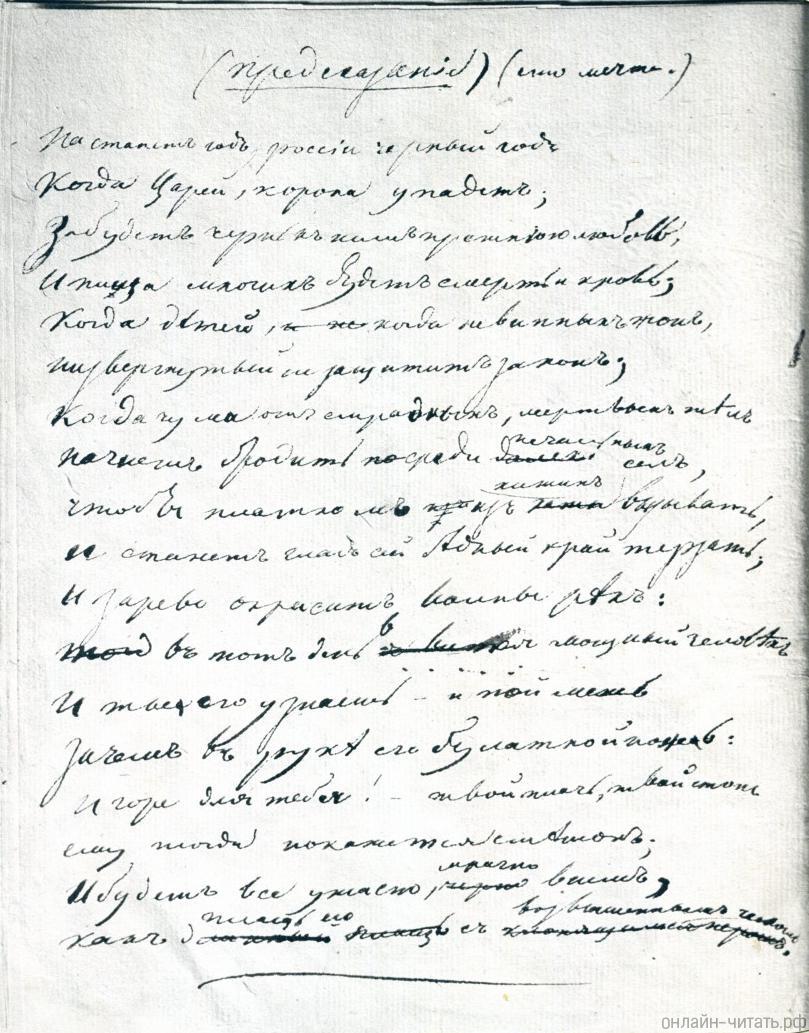 (Предсказаніе) (это мечта.)
Настанетъ годъ, россіи черный годъ
Когда Царей, корона упадетъ;
Забудетъ чернь къ нимъ прежнюю любовь,
И пища многихъ будетъ смерть и кровь;
Когда дѣтей, когда невинныхъ жонъ,
низвергнутый не защититъ законъ;
Когда чума отъ смрадныхъ, мертвыхъ тѣлъ
начнетъ бродить посреди печальныхъ селъ,
чтобы платкомъ изъ хижинъ вызывать,
И станетъ гладъ сей бѣдный край терзать,
И зарево окраситъ волны рѣкъ:
въ тотъ день явится мощный человѣкъ
И ты его узнаешь – и поймешь
зачемъ въ рукѣ его булатной ножъ:
И горе для тебя! – твой плачь, твой стонъ
ему тогда покажется смѣшонъ;
И будетъ все ужасно, мрачно въ немъ,
какъ плащь его съ возвышеннымъ челомъ.
онлайн-читать.рф